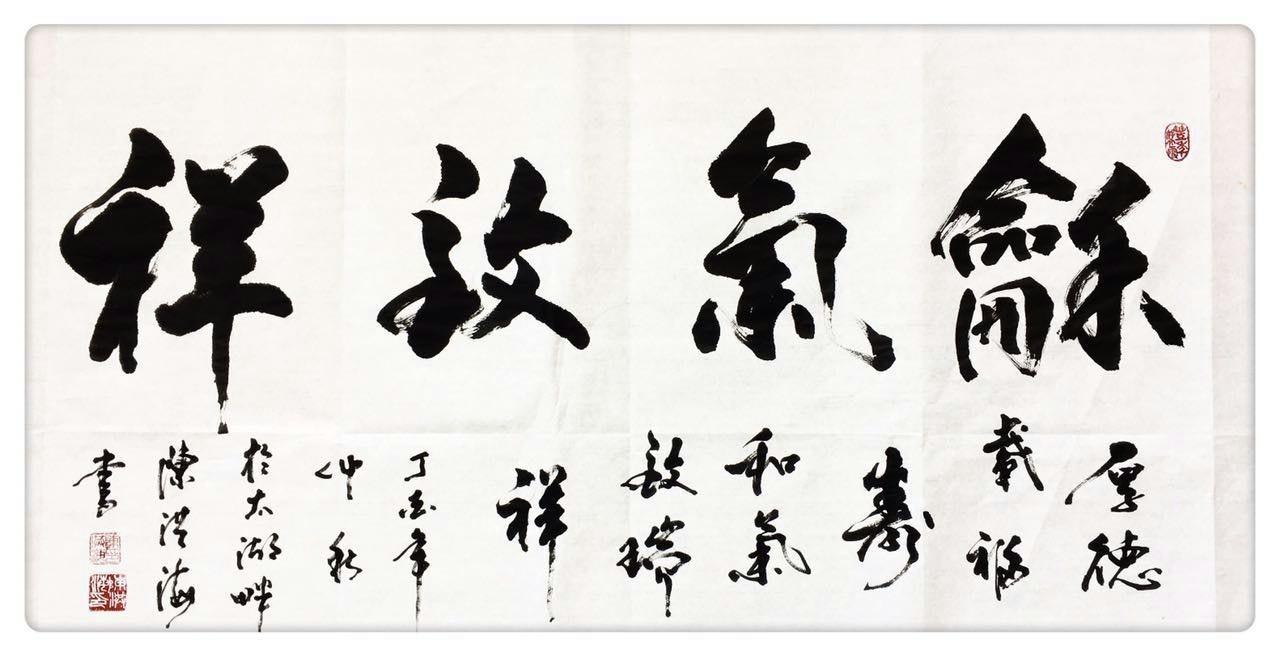 龢氣致祥
厚德
載福
壽
和氣
致瑞
祥
丁酉年
仲秋
於太湖畔
陳洪海
書